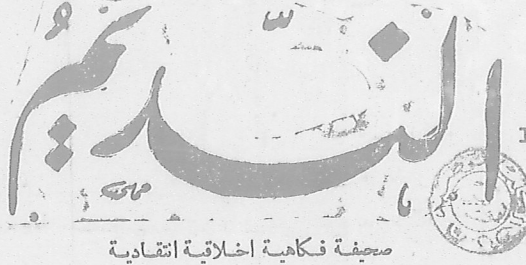 النَّديمُ
صحيفة فكاهية اخلاقية انتقادية